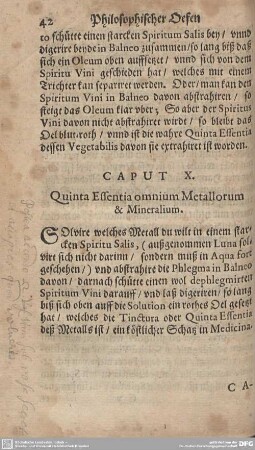 42 Philosophischer Oefen
to schütte einen starcken Spiritum Salis bey / vnnd
digerire beyde in Balneo zusammen / so lang biß daß
sich ein Oleum oben aussetzet / vnnd sich von dem
Spiritu Vini geschieden hat / welches mit einem
Trichter kan separiret werden. Oder / man kan den
Spiritum Vini in Balneo davon abstrahiren / so
steigt das Oleum klar vber; So aber der Spiritus
Vini davon nicht abstrahiret wurdt / so bleibt das
Oel blut-roth / vnnd ist die wahre Quinta Essentia
dessen Vegetabilis davon sie extrahiret ist worden.
CAPUT X.
Quinta Essentia omnium Metallorum
& Mineralium.
SOlvire welches Metall du wilt in einem star-
cken Spiritu Salis, (außgenommen Luna sol-
vire sich nicht darinn / sondern muß in Aqua fort
geschehen /) vnd abstrahire die Phlegma in Balneo
davon / darnach schütte einen wol dephlegmirten
Spiritum Vini darauff / vnd laß digeriren / so lang
biß sich oben auff die Solution ein rothes Oel gesetzt
hat / welches die Tinctura oder Quinta Essentia
deß Metalls ist / ein köstlicher Schatz in Medicina.
C A-